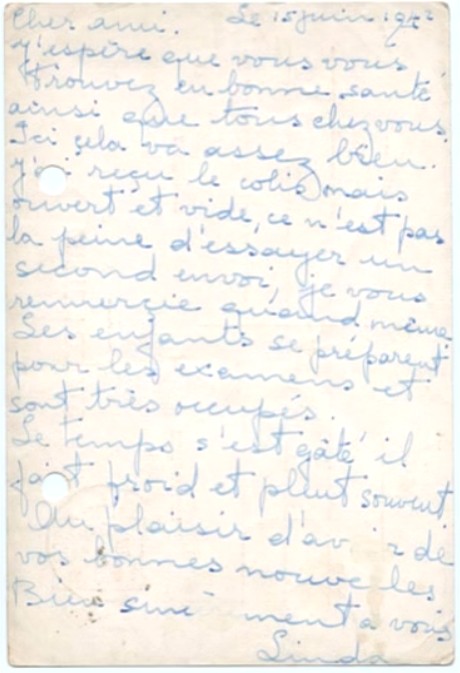 Cher ami. Le 15 juin
J'espère que vous vous
trouvez en bonne santé
ainsi que tous chez vous.
Ici cela va assez bien.
J'ai reçu le colis mais
ouvert et vide, ce n'est pas
la peine d'essayer un
second envoi, je vous
remercie quand même
Les enfants se préparent
pour les examens et
sont très occupés.
Le temps s'est gâté il
fait froid et pleut souvent
Au plaisir d'av r de
vos bonnes nouve les
Bien sinc ment à vous
Linda